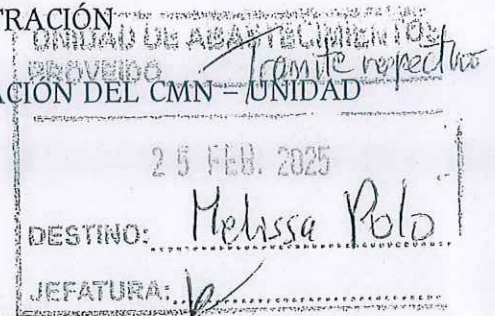 TRACIÓN
UNIDAD DE ABASTECIMIENTOS
PROVEIDO Tramite respectivo
ACIÓN DEL CMN – UNIDAD
25 FEB. 2025
DESTINO: Melissa Polo
JEFATURA: